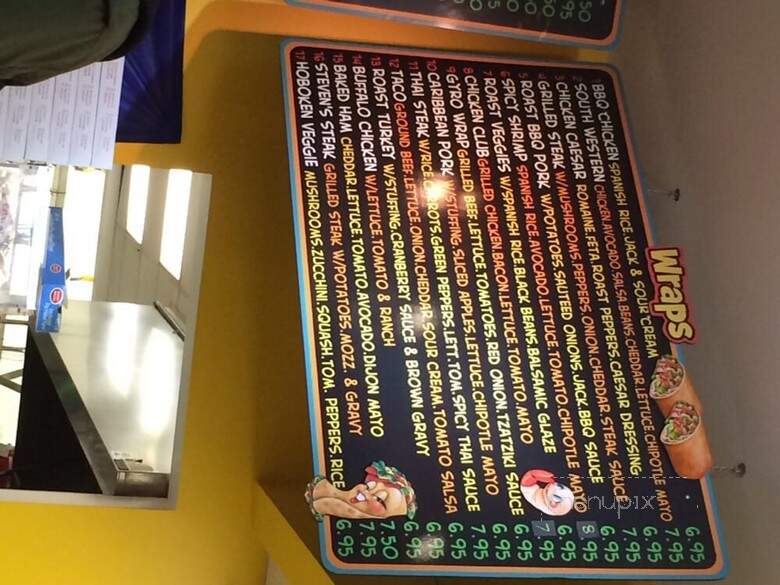 Wraps
1 BBQ CHICKEN SPANISH RICE, JACK & SOUR CREAM 6.95
2 SOUTH WESTERN CHICKEN, AVOCADO, SALSA, BEANS, CHEDDAR, LETTUCE, CHIPOTLE MAYO 7.95
3 CHICKEN CAESAR ROMAINE, FETA, ROAST PEPPERS, CAESAR DRESSING 6.95
4 GRILLED STEAK W/MUSHROOMS, PEPPERS, ONION, CHEDDAR STEAK SAUCE 7.95
5 ROAST BBQ PORK W/POTATOES, SAUTEED ONIONS, JACK, BBQ SAUCE 6.95
6 SPICY SHRIMP SPANISH RICE, AVOCADO, LETTUCE, TOMATO, CHIPOTLE 8.95
7 ROAST VEGGIES W/SPANISH RICE, BLACK BEANS, BALSAMIC GLAZE 6.95
8 CHICKEN CLUB GRILLED CHICKEN, BACON, LETTUCE, TOMATO, MAYO 7.95
9 GYRO WRAP GRILLED BEEF, LETTUCE, TOMATOES, RED ONION, TZATZIKI SAUCE 6.95
10 CARIBBEAN PORK W/STUFFING, SLICED APPLES, LETTUCE, CHIPOTLE MAYO 6.95
11 THAI STEAK W/RICE, CARROTS, GREEN PEPPERS, LETT, TOM, SPICY THAI SAUCE 7.95
12 TACO GROUND BEEF, LETTUCE, ONION, CHEDDAR, SOUR CREAM, TOMATO SALSA 6.95
13 ROAST TURKEY W/STUFFING, CRANBERRY SAUCE & BROWN GRAVY 6.95
14 BUFFALO CHICKEN W/LETTUCE, TOMATO & RANCH 6.95
15 BAKED HAM CHEDDAR, LETTUCE, TOMATO, AVOCADO, DIJON MAYO 7.50
16 STEVEN'S STEAK GRILLED STEAK W/POTATOES, MOZZ. & GRAVY 7.95
17 HOBOKEN VEGGIE MUSHROOMS, ZUCCHINI, SQUASH, TOM, PEPPERS, RICE 6.95